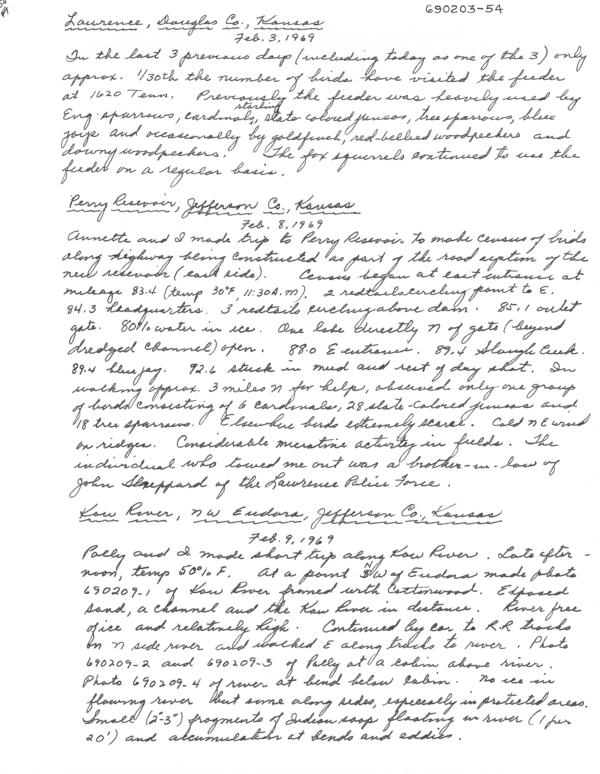 690203-54
Lawrence, Douglas Co., Kansas
Feb. 3, 1969
In the last 3 previous days (including today as one of the 3) only
approx. 1/30th the number of birds have visited the feeder
at 1620 Tenn. Previously the feeder was heavily used by
Eng. sparrows, cardinals, starling slate colored juncos, tree sparrows, blue
jays and occasionally by goldfinch, red-bellied woodpeckers and
downy woodpeckers. The fox squirrels continued to use the
feeder on a regular basis.
Perry Resevoir, Jefferson Co., Kansas
Feb. 8, 1969
Annette and I made trip to Perry Resevoir to make census of birds
along highway being constructed as part of the road system of the
new resevoir (east side). Census began at east entrance at
mileage 83.4 (temp 30°F, 11:30 A.M). 2 redtails circling point to E.
84.3 headquarters. 3 redtails circling above dam. 85.1 outlet
gate. 80% water in ice. One lake directly N of gate (beyond
dredged channel) open. 88.0 E entrance. 89.4 Slough Creek.
89.4 blue jay. 92.6 stuck in mud and rest of day shot. In
walking approx. 3 miles N for help, observed only one group
of birds consisting of 6 cardinals, 28 slate-colored juncos and
18 tree sparrows. Elsewhere birds extremely scarce. Cold NE wind
on ridges. Considerable microtine activity in fields. The
individual who towed me out was a brother-in-law of
John Sheppard of the Lawrence Police Force.
Kaw River, NW Eudora, Jefferson Co., Kansas
Feb. 9, 1969
Polly and I made short trip along Kaw River. Late after-
noon, temp 50° F. At a point NW of Eudora made photo
690209-1 of Kaw River framed with Cottonwood. Exposed
sand, a channel and the Kaw River in distance. River free
of ice and relatively high. Continued by car to R.R tracks
on N side river and walked E along tracks to river. Photo
690209-2 and 690209-3 of Polly at a cabin above river.
Photo 690209-4 of river at bend below cabin. No ice in
flowing river but some along sides, especially in protected areas.
Small (2"-3") fragments of Indian soap floating in river (1 per
20') and accumulation at bends and eddies.